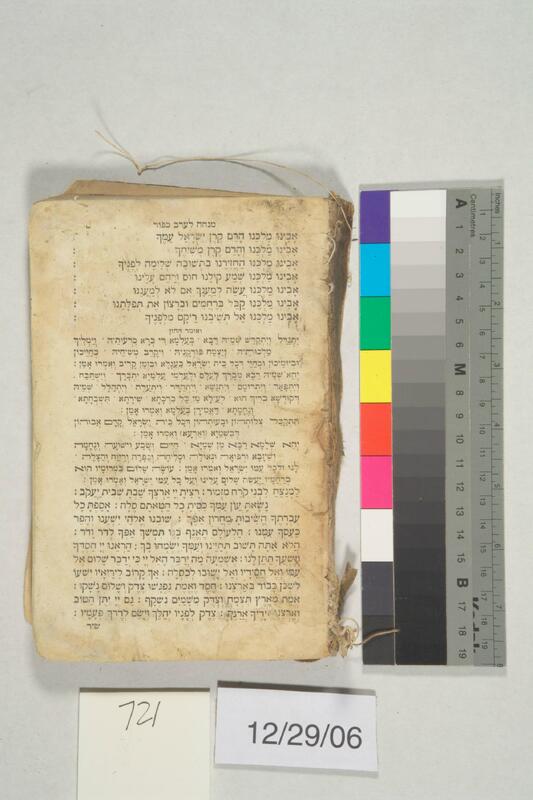 מנחה לערב כפור
אבינו מלכנו הרם קרן ישראל עמך
אבינו מלכנו והרם קרן משיחך
אבינו מלכנו החזירנו בתשובה שלימה לפניך
אבינו מלכנו שמע קולנו חוס ורחם עלינו
אבינו מלכנו עשה למענך אם לא למעננו
אבינו מלכנו קבל ברחמים וברצון את תפלתנו
אבינו מלכנו אל תשיבנו ריקם מלפניך
ואומר החזן
יתגדל ויתקדש שמיה רבא בעלמא די ברא כרעותיה וימליך
מלכותיה ויצמח פורקניה ויקרב משיחיה בחייכון
וביומיכון ובחיי דכל בית ישראל בעגלא ובזמן קריב ואמרו אמן
יהא שמיה רבא מברך לעלם ולעלמי עלמיא יתברך וישתבח
ויתפאר ויתרומם ויתנשא ויתהדר ויתעלה ויתהלל שמיה
דקודשא בריך הוא לעילא מן כל ברכתא שירתא תשבחתא
ונחמתא דאמירן בעלמא ואמרו אמן :
תתקבל צלותהון ובעותהון דכל בית ישראל קדם אבוהון
דבשמיא ואמרו אמן :
יהא שלמא רבא מן שמיא חיים ושבע וישועה ונחמה
ושיזבא ורפואה וגאולה וסליחה וכפרה ורוח והצלה
לנו ולכל עמו ישראל ואמרו אמן : עושה שלום במרומיו הוא
ברחמיו יעשה שלום עלינו ועל כל עמו ישראל ואמרו אמן :
למנצח לבני קרח מזמור : רצית יי ארצך שבת שבית יעקב :
נשאת עון עמך כסית כל חטאתם סלה : אספת כל
עברתך השיבות מחרון אפך : שובנו אלהי ישענו והפר
כעסך עמנו : הלעולם תאנף בנו תמשך אפך לדר ודר :
הלא אתה תשוב תחיינו ועמך ישמחו בך : הראנו יי חסדך
וישעך תתן לנו : אשמעה מה ידבר האל יי כי ידבר שלום אל
עמו ואל חסידיו ואל ישובו לכסלה : אך קרוב ליראיו ישעו
לשכן כבוד בארצנו : חסד ואמת נפגשו צדק ושלום נשקו :
אמת מארץ תצמח וצדק משמים נשקף : גם יי יתן הטוב
וארצנו תתן יבולה : צדק לפניו יהלך וישם לדרך פעמיו :
שיר
Inches
1
2
3
4
5
6
7
Centimetres
A 1 2 3 4 5 6 7 M 8 9 10 11 12 13 14 15 B 17 18 19
721
12/29/06